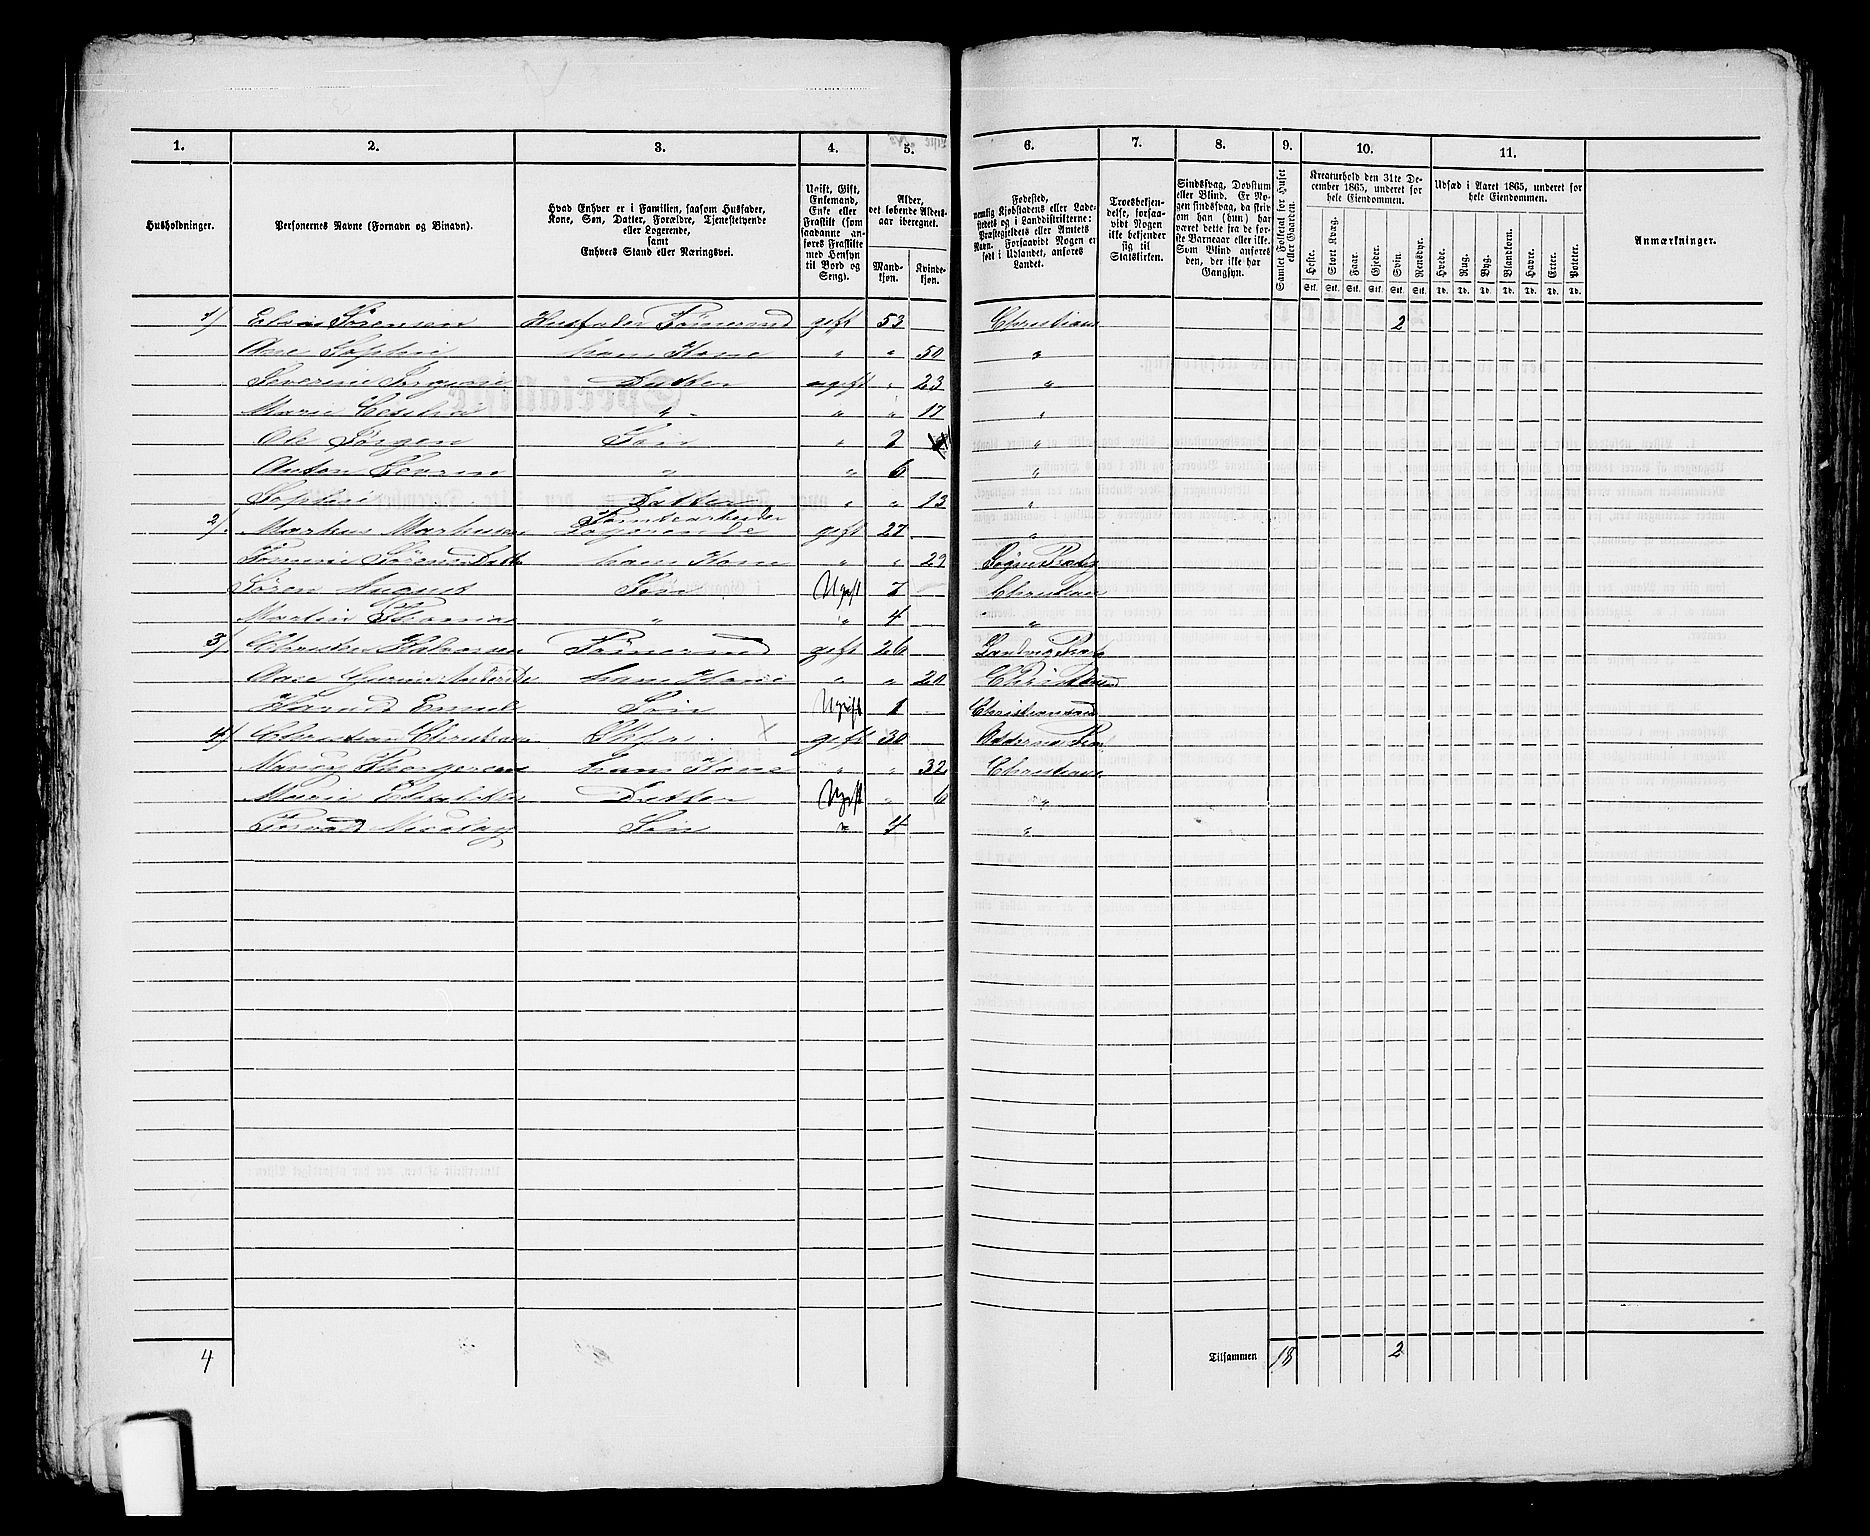 1. 2. 3. 4. 5. 6. 7. 8. 9. 10. 11.
Husholdninger.
Personernes Navne (Fornavn og Binavn).
Hvad Enhver er i Familien, saasom Husfader,
Kone, Søn, Datter, Forældre, Tjenestetyende
eller Logerende,
samt
Enhvers Stand eller Næringsvei.
Ugift, Gift,
Enkemand,
Enke eller
Fraskilt (som
saadanne an-
føres Fraskilte
med Hensyn
til Bord og
Seng).
Alder,
det løbende Alders-
aar iberegnet.
Mand-
kjøn.
Kvinde-
kjøn.
Fødested,
nemlig Kjøbstadens eller Lade-
stedets og i Landdistrikterne:
Præstegjeldets eller Amtets
Navn. Forsaavidt Nogen er
født i Udlandet, anføres
Landet.
Troesbekjen-
delse, forsaa-
vidt Nogen
ikke bekjender
sig til
Statskirken.
Sindssvag, Døvstum
eller Blind. Er No-
gen sindssvag, da skriv
om han (hun) har
været dette fra de før-
ste Barneaar eller ikke.
Som Blind anføres
den, der ikke har
Gangsyn.
Samlet Folketal for Huset
eller Gaarden.
Kreaturhold den 31te De-
cember 1865, underet for
hele Eiendommen.
Heste. Stort Kvæg. Faar. Gjeder. Svin. Rensdyr.
Stk. Stk. Stk. Stk. Stk. Stk.
Udsæd i Aaret 1865, underet for
hele Eiendommen.
Hvede. Rug. Byg. Blandkorn. Havre. Erter. Poteter.
Td. Td. Td. Td. Td. Td. Td.
Anmærkninger.
1/ Sørensen Husfader Tømermd gift 53 Christians 2
Ane Sophie hans Kone " " 50 "
Severine Datter ugift " 23 "
Marie " " " 17 "
Ole Jørgen Søn " 2 "
Anton " " 6 "
Sophie Datter " " 13 "
Tomtearbeider
2/. Markus Markussen Logerende gift 27 "
hans Kone " " 29 Søgne
Søren August Søn Ugift 7 Christians
Martin Thomas " " 4 "
3/. Christen Halvorsen Tømermd gift 26 Landvig
Aase hans Kone " " 20 Christiansand
Emil Søn Ugift 1 Christiansand
4/ Christian Christians gift 30 Oddernes
hans Kone " " 32 Christians
Marie Datter Ugift " 6 "
Nicolay Søn " 4 "
4 Tilsammen 18 2